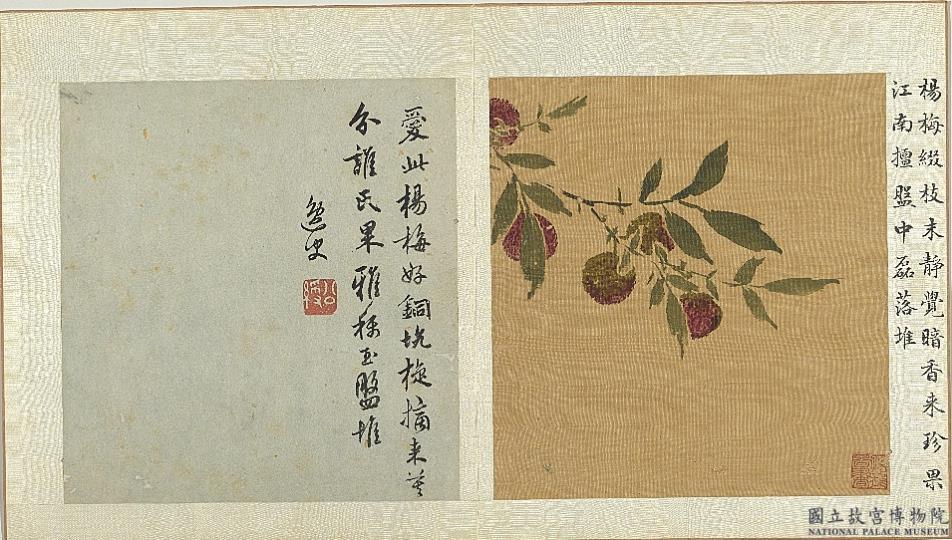 楊梅綴枝末靜覺暗香来珍果
江南擅盤中磊落堆
愛此楊梅好銅坑旋摘来莫
分誰氏果雅称玉盤堆
逸史
國立故宮博物院
NATIONAL PALACE MUSEUM